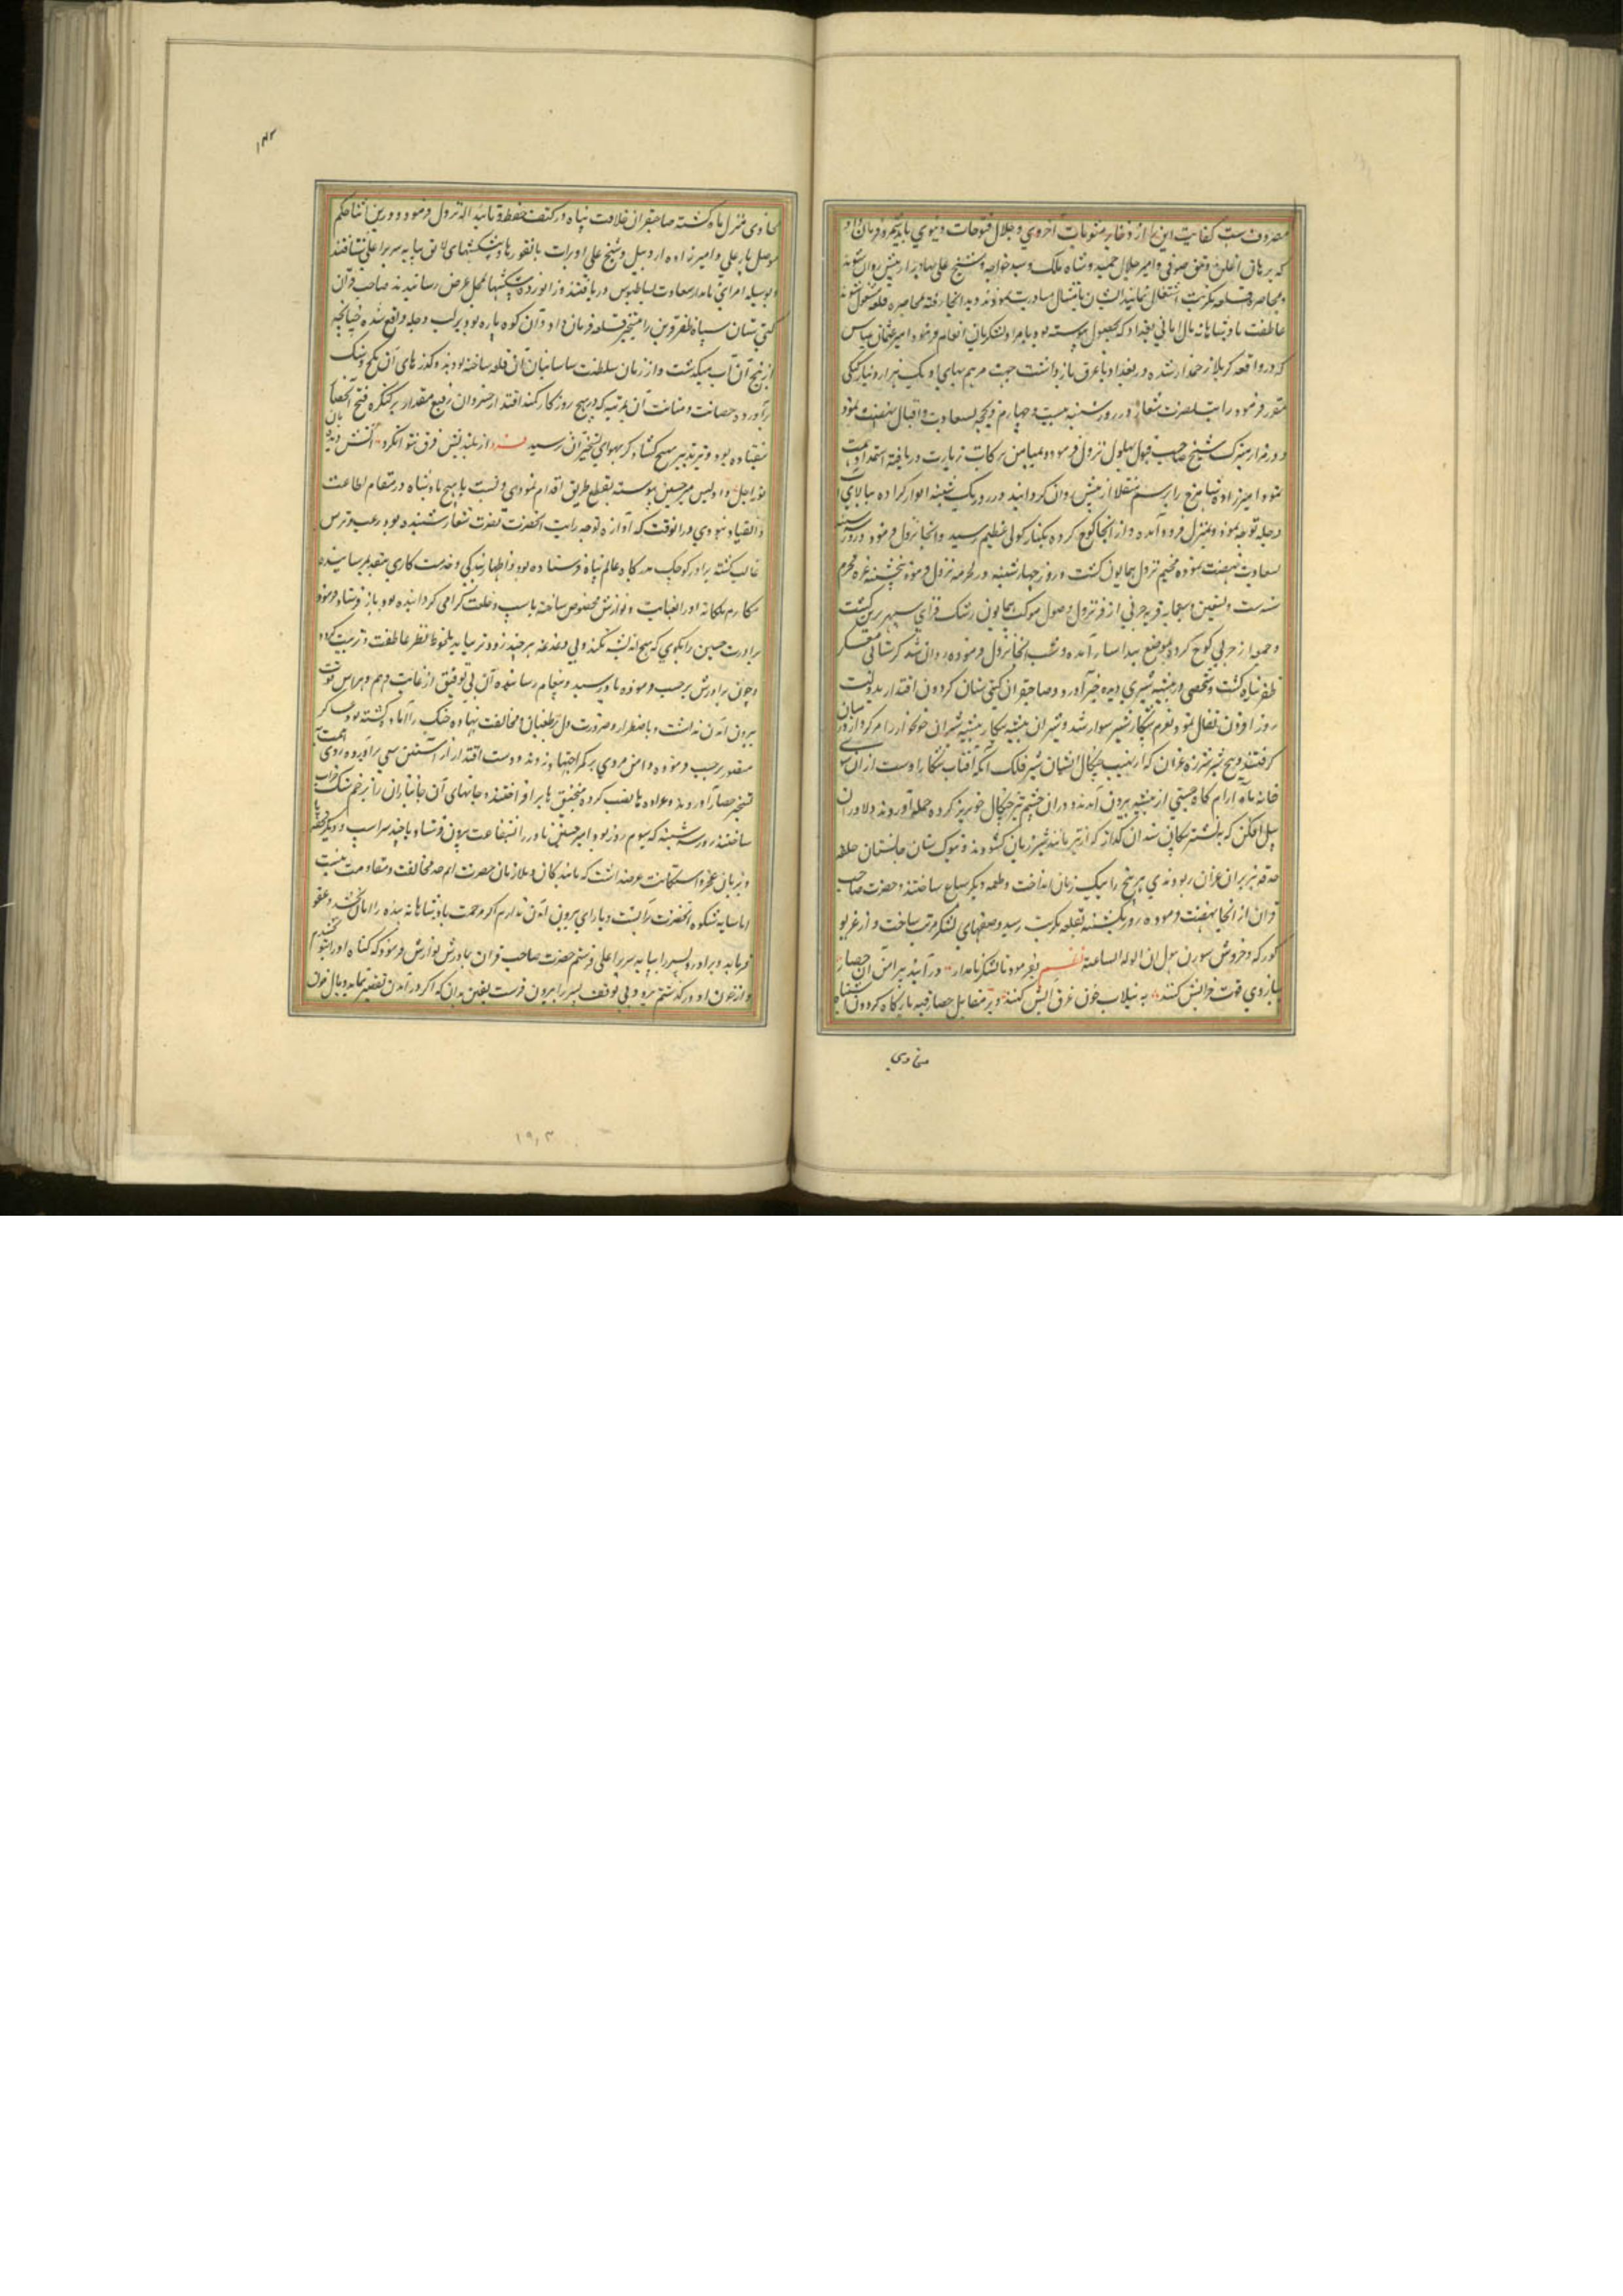 مصروفست کفایت این کار از ذخایر مثوبات اخروی و جلال فتوحات دنیوی باید شمرد و فرمان داد
که برهان اغلن و حق صوفی و امیر جلال حمید و شاه ملک و سید خواجه و شیخ علی بهادر از پیش روان شوند
و محاصره قلعه تکریت اشتغال نمایند ایشان بامتثال مبادرت نمودند و بدانجا رفته بمحاصره قلعه مشغول شدند
عاطفت پادشاهانه مال امانی بغداد که بحصول پیوسته بود بامرا و لشکریان انعام فرمود و امیر عثمان عباس
که در واقعه کربلا زخمدار شده در بغداد باعرق باز داشت جهت مرهم بهای او یک هزار دینار کپکی
مقرر فرمود رایت نصرت شعار در روز شنبه بیست و چهارم ذیحجه بسعادت و اقبال نهضت نمود
و در مزار متبرک شیخ صاحب قبول بهلول نزول فرمود و میامن برکات زیارت دریافته استمداد همت
نمود امیرزاده میرانشاه را برسم منقلا از پیش روان گردانید و در روز یکشنبه
دجله توجه نمود و بمنزل فرود آمده و از آنجا کوچ کرده بکنار کولی عظیم رسید و آنجا نزول فرمود و روز سه شنبه
بسعادت نهضت نموده مخیم نزول همایون گشت و روز چهارشنبه در لحرمه نزول فرمود پنجشنبه غره محرم
سنه ست و تسعین و سبعمایه قریه حربی از فر نزول وصول موکب همایون رشک فزای سپهر برین گشت
و جمعه از حربی کوچ کرده بموضع آمده و شب آنجا نزول فرموده روان شد کرشانی معسکر
ظفر پناه گشت و شخصی در بیشه شیری دیده خبر آورد و صاحبقران گیتی ستان گردون اقتدار بدولت
روز افزون تفال نمود و بعزم شکار شیر سوار شد و شیران بیشه پیکار بیشه شیران خونخوار را مرکز وار در میان
گرفتند و پنج شیر شرزه غران که از نهیب چنگال ایشان شیر فلک آنکه آفتاب شکار اوست از آن سوی
خانه ماه آرام گاه جستی از بیشه بیرون آمدند و در آن حشم تیز چنگال خونریز کرده حمله آوردند و دلاوران
پیل افکن که به نشتر پیکان سندان گداز گره از تیر مانند شیر ژیان گشودند و بنوک سنان جانستان حلقه
حدقه ببران غران ربودندی هر پنج را بیک زمان انداخت و طعمه دیگر سباع ساختند و حضرت صاحب
قران از آنجا نهضت فرموده روز یکشنبه بقلعه تکریت رسید و صفهای لشکر مرتب ساخت و از غریو
کورکه و خروش سورن هول ان زلزلة الساعة نظم بفرمود تا لشکر نامدار در آیند پیرامن آن حصار
ببازوی قوت خرابش کنند به سیلاب خون غرق آبش کنند و در مقابل حصار قبه بارگاه گردون اشتباه
محاذی
۱۴۲
محاذی منزل ماه گشته صاحبقران خلافت پناه در کنف حفظ و تایید اله نزول فرمود و درین اثنا حاکم
موصل یار علی و امیرزاده اردبیل و شیخ علی اویرات با تقوزها و پیشکشهای لایق بپایه سریر اعلی شتافتند
و بوسیله امرای نامدار سعادت بساط بوس دریافتند و زانو زده پیشکشها بمحل عرض رسانیدند صاحب قران
گیتی ستان سپاه ظفر قرین را بتسخیر قلعه فرمان داد و آن کوه پاره بود بر لب دجله واقع شده چنانچه
از پنج آن آب میگذشت و از زمان سلطنت ساسانیان آن قلعه ساخته بودند و گذرهای آن بگچ و سنگ
برآورده حصانت و متانت آن بمرتبه که در هیچ روزگار کمند اقتدار خسروان رفیع مقدار بر کنگره فتح آنحصار
نیفتاده بود و تیر تدبیر هیچ کشورگیر بهوای تسخیر آن نرسید از بلندیش فرق نتوان کرد آتش دیدبان
نور اجل و اویس میر حسین پیوسته بقطع طریق اقدام نمودی و نسبت با هیچ پادشاه در مقام اطاعت
و انقیاد نبودی در آنوقت که آوازه توجه رایت آنحضرت نصرت شعار شنیده بود رعب و ترس
غالب گشته برادر کوچک بدرگاه عالم پناه فرستاده بود و اظهار بندگی و خدمت کاری بتقدیم رسانیده
مکارم ملکانه او را بعنایت و نوازش مخصوص ساخته باسپ و خلعت گرامی گردانیده بود باز فرستاد و فرمود
برادرت حسین را بگوی که هیچ اندیشه نکند و بی دغدغه هر چند زودتر بیاید ملحوظ نظر عاطفت و تربیت گردد
و چون برادرش بر حسب فرموده باو رسید و پیغام رسانید آن بی توفیق از غایت وهم و هراس قوت
بیرون آمدن نداشت و باضطرار و ضرورت دل بر طغیان و مخالفت نهاده جنگ را آماده گشته بود عساکر
منصور بر حسب فرموده دامن مردی بر کمر اجتهاد زدند و دست اقتدار از آستین سعی برآورده روی همت
بتسخیر حصار آوردند و عراده ها نصب کرده منجنیق ها برافراختند و جانهای آن جانبازان را بزخم سنگ خراب
ساختند روز سه شنبه که سوم روز بود امیر حسین مادر را بشفاعت بیرون فرستاد با چند سر اسپ و دیگر تحفها
و بزبان عجز و استکانت عرضه داشت که ما بندگان و ملازمان حضرت ایم حد مخالفت و مقاومت نیست
اما سایه شکوه آنحضرت گران است و یارای بیرون آمدن ندارم اگر مرحمت پادشاهانه بنده را امان بخشد و عفو
فرماید و برادر و پسر را بپایه سریر اعلی فرستم حضرت صاحب قران مادرش نوازش فرمود که گناه او را بتو بخشیدم
و از خون او درگذشتم برو و بی توقف پسر را بیرون فرست یقین بدان که اگر در آمدن تقصیر نماید وبال خون
۱۹۰۳